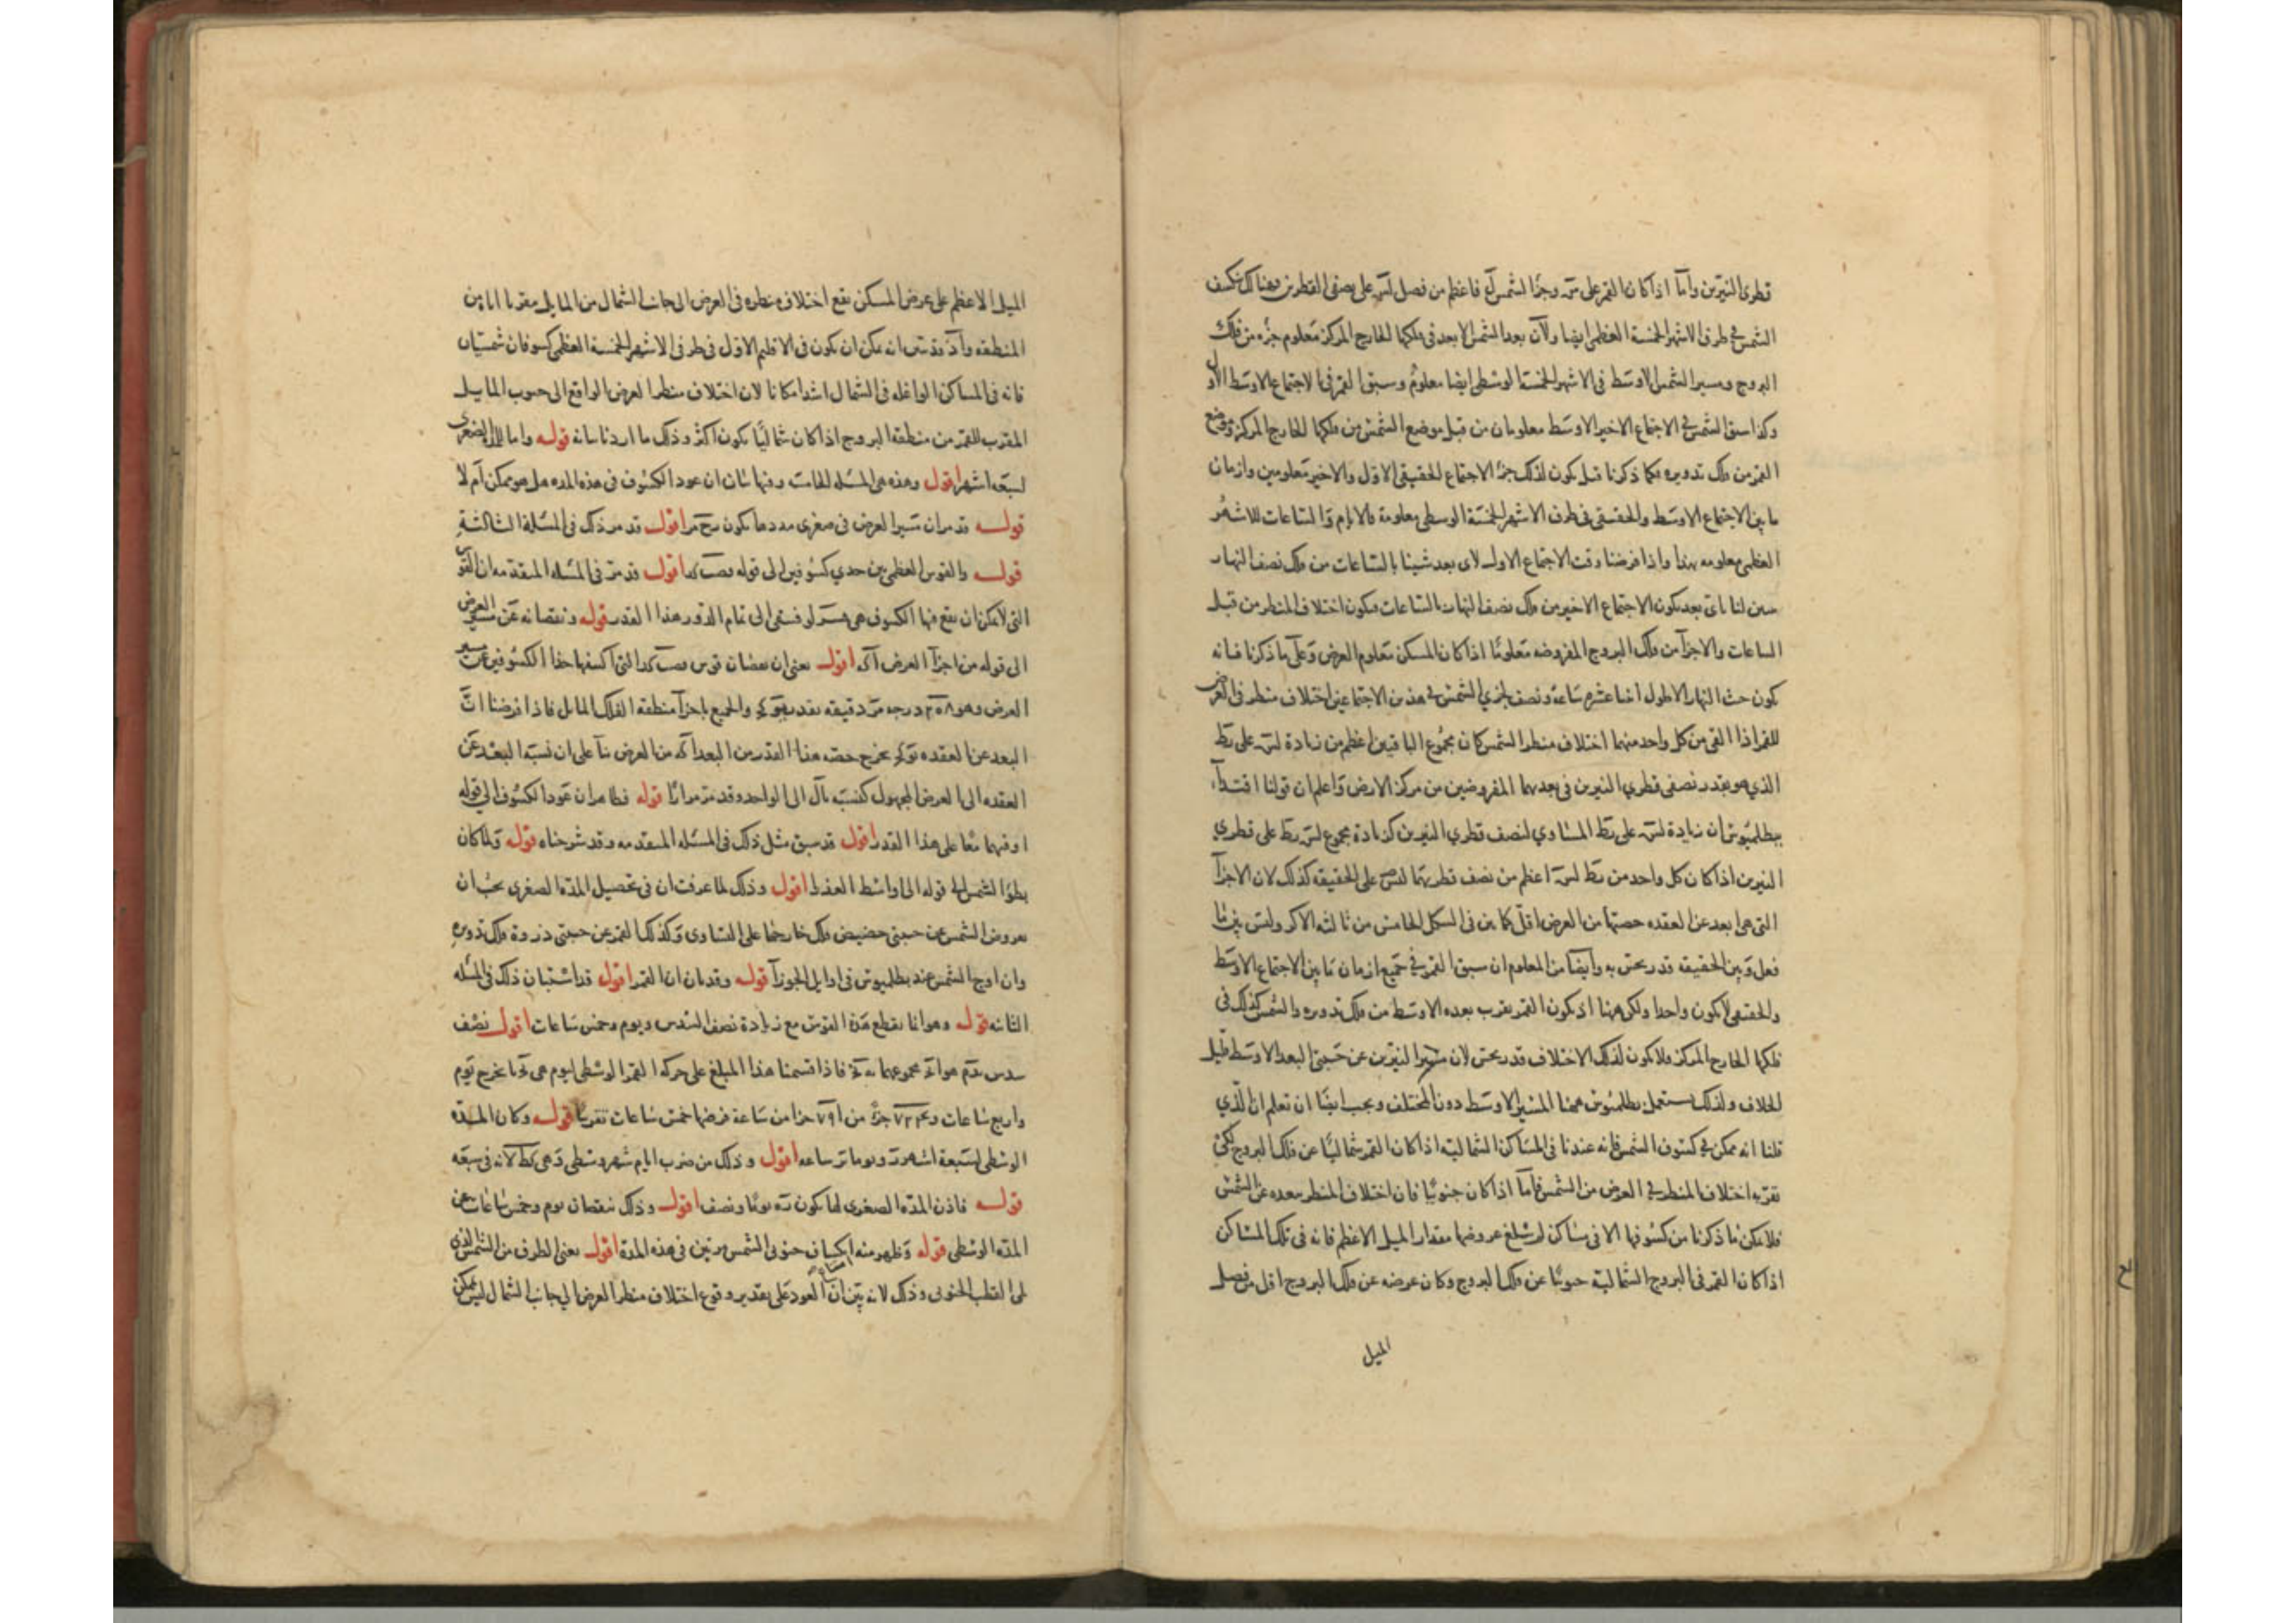 قطرى النيرين وأما اذا كان القمر على وجزء الشمس فاعظم من فصل على نصفى القطرين فهناك تنكسف
الشمس فى طرفى الاشهر الخمسة العظمى ايضا ولأن بعد الشمس الابعد فى فلكها الخارج المركز معلوم جزءه من فلك
البروج ومسير الشمس الاوسط فى الاشهر الخمسة الوسطى ايضا معلوم وسبق القمر فى الاجتماع الاوسط الاول
وكذا سبق الشمس فى الاجتماع الاخير الاوسط معلومان من قبل موضع الشمس من فلكها الخارج المركز وموضع
القمر من فلك تدويره كما ذكرنا قبل يكون لذلك جزءا الاجتماع الحقيقى الاول والاخير معلومين وازمان
ما بين الاجتماع الاوسط والحقيقى فى طرفى الاشهر الخمسة الوسطى معلومة فالايام والساعات للاشهر
العظمى معلومه بهذا واذا فرضنا وقت الاجتماع الاول لاى بعد شينا بالساعات من فلك نصف النهار
تبين لنا باى بعد يكون الاجتماع الاخير من فلك نصف النهار بالساعات فيكون اختلاف المنظر من قبل
الساعات والاجزآ من فلك البروج المفروضه معلوما اذا كان المسكن معلوم العرض وعلى ما ذكرنا فانه
يكون حيث النهار الاطول اثنا عشر ساعة ونصف لجزئى الشمس فى هذين الاجتماعين اختلاف منظر فى العرض
للقمر اذا القى من كل واحد منهما اختلاف منظر الشمس كان مجموع الباقيين اعظم من زيادة على
الذى هو بقدر نصفى قطرى النيرين فى بعديهما المفروضين من مركز الارض واعلم ان قولنا اقتداء
ببطلميوس ان زيادة على المساوى لنصف قطرى النيرين كزيادة مجموع على قطرى
النيرين اذا كان كل واحد من اعظم من نصف قطريهما ليس على الحقيقه كذلك لان الاجزآ
التى هى ابعد عن العقده حصتها من العرض اقل كما بين فى الشكل الخامس من ثالثه الاكر وليس بين ما
فعل وبين الحقيقه قدر يحس به وأيضا من المعلوم ان سبق القمر فى جميع ازمان ما بين الاجتماع الاوسط
والحقيقى لا يكون واحدا ولكن ههنا اذ يكون القمر بقرب بعده الاوسط من فلك تدويره والشمس كذلك فى
فلكها الخارج المركز فلا يكون لذلك الاختلاف قدر يحس لان مسير النيرين عن جنبتى البعد الاوسط قليل
الخلاف ولذلك يستعمل بطلميوس ههنا المسير الاوسط دون المختلف ويجب ايضا ان تعلم ان الذى
قلنا انه ممكن فى كسوف الشمس فانه عندنا فى المساكن الشماليه اذا كان القمر شماليا عن فلك البروج لكى
تقربه اختلاف المنظر فى العرض من الشمس فأما اذا كان جنوبيا فان اختلاف المنظر يبعده عن الشمس
فلا يمكن ما ذكرنا من كسوفها الا فى مساكن لم تبلغ عروضها مقدار الميل الاعظم فانه فى تلك المساكن
اذا كان القمر فى البروج الشمالية جنوبيا عن فلك البروج وكان عرضه عن فلك البروج اقل من فصل
الميل
الميل الاعظم على عرض المسكن يقع اختلاف منظره فى العرض الى جانب الشمال من المايل مقربا اياه من
المنطقه وأذ قد تبين انه يمكن ان يكون فى الاقليم الاول فى طرفى الاشهر الخمسة العظمى كسوفان شمسيان
فانه فى المساكن الواغله فى الشمال اشد امكانا لان اختلاف منظر العرض الواقع الى جنوب المايل
المقرب للقمر من منطقه البروج اذا كان شماليا يكون اكثر وذلك ما اردنا بيانه قوله واما الصغرى
لسبعه اشهر اقول وهذه هى المسئله الخامسة وفيها بيان ان عود الكسوف فى هذه المده هل هو ممكن أم لا
قوله قد مر ان مسير العرض فى صغرى مددها يكون اقول قد مر ذلك فى المسئلة الثالثة
قوله والقوس العظمى بين حدى كسوفين الى قوله اقول قد مر فى المسئله المتقدمه ان القوس
التى لا يمكن ان يقع فيها الكسوف هى فيبقى الى تمام الدور هذا القدر قوله ونقصانه عن مسير العرض
الى قوله من اجزآ العرض اقول يعنى ان نقصان قوس التى اكتنفها حدا الكسوفين عن مسير
العرض وهو درجه دقيقه بقدر والجميع باجزآ منطقه الفلك المايل فاذا فرضنا ان
البعد عن العقده يخرج حصه هذا القدر من البعد من العرض بنآ على ان نسبه البعد عن
العقده الى العرض المجهول كنسبه الى الواحد وقد مر مرارا قوله فظاهر ان عود الكسوف الى قوله
او فيهما معا على هذا القدر اقول قد سبق مثل ذلك فى المسئله المتقدمه وقد شرحناه قوله ولما كان
بطؤ الشمس الى قوله الى اواسط العقرب اقول وذلك لما عرفت ان فى تحصيل المدة الصغرى يجب ان
نفرض الشمس عن جنبتى حضيض فلك خارجها على التساوى وكذلك القمر عن جنبتى ذروة فلك تدويره
وان اوج الشمس عند بطلميوس فى اوايل الجوزآ قوله وقد بان ان القمر اقول قد استبان ذلك فى المسئله
الثانيه قوله وهو انما يقطع هذا القوس مع زيادة نصف السدس ويوم وخمس ساعات اقول نصف
سدس هو مجموعهما فاذا قسمنا هذا المبلغ على حركه القمر الوسطى ليوم هى يخرج يوم
واربع ساعات و جزءا من ٧٩١ جزا من ساعة فرضها خمس ساعات تقريبا قوله وكان المدة
الوسطى لسبعة اشهر ويوما ساعه اقول وذلك من ضرب ايام شهر وسطى وهى فى سبعه
قوله فاذن المدة الصغرى لها يكون يوما ونصف اقول وذلك بنقصان يوم وخمس ساعات من
المدة الوسطى قوله وظهر منه انكساف جنوبى الشمس مرتين فى هذه المدة اقول يعنى الطرف من الشمس الذى
يلى القطب الجنوبى وذلك لانه بين ان العود على تقدير وقوع اختلاف منظر العرض الى جانب الشمال ليس يمكن